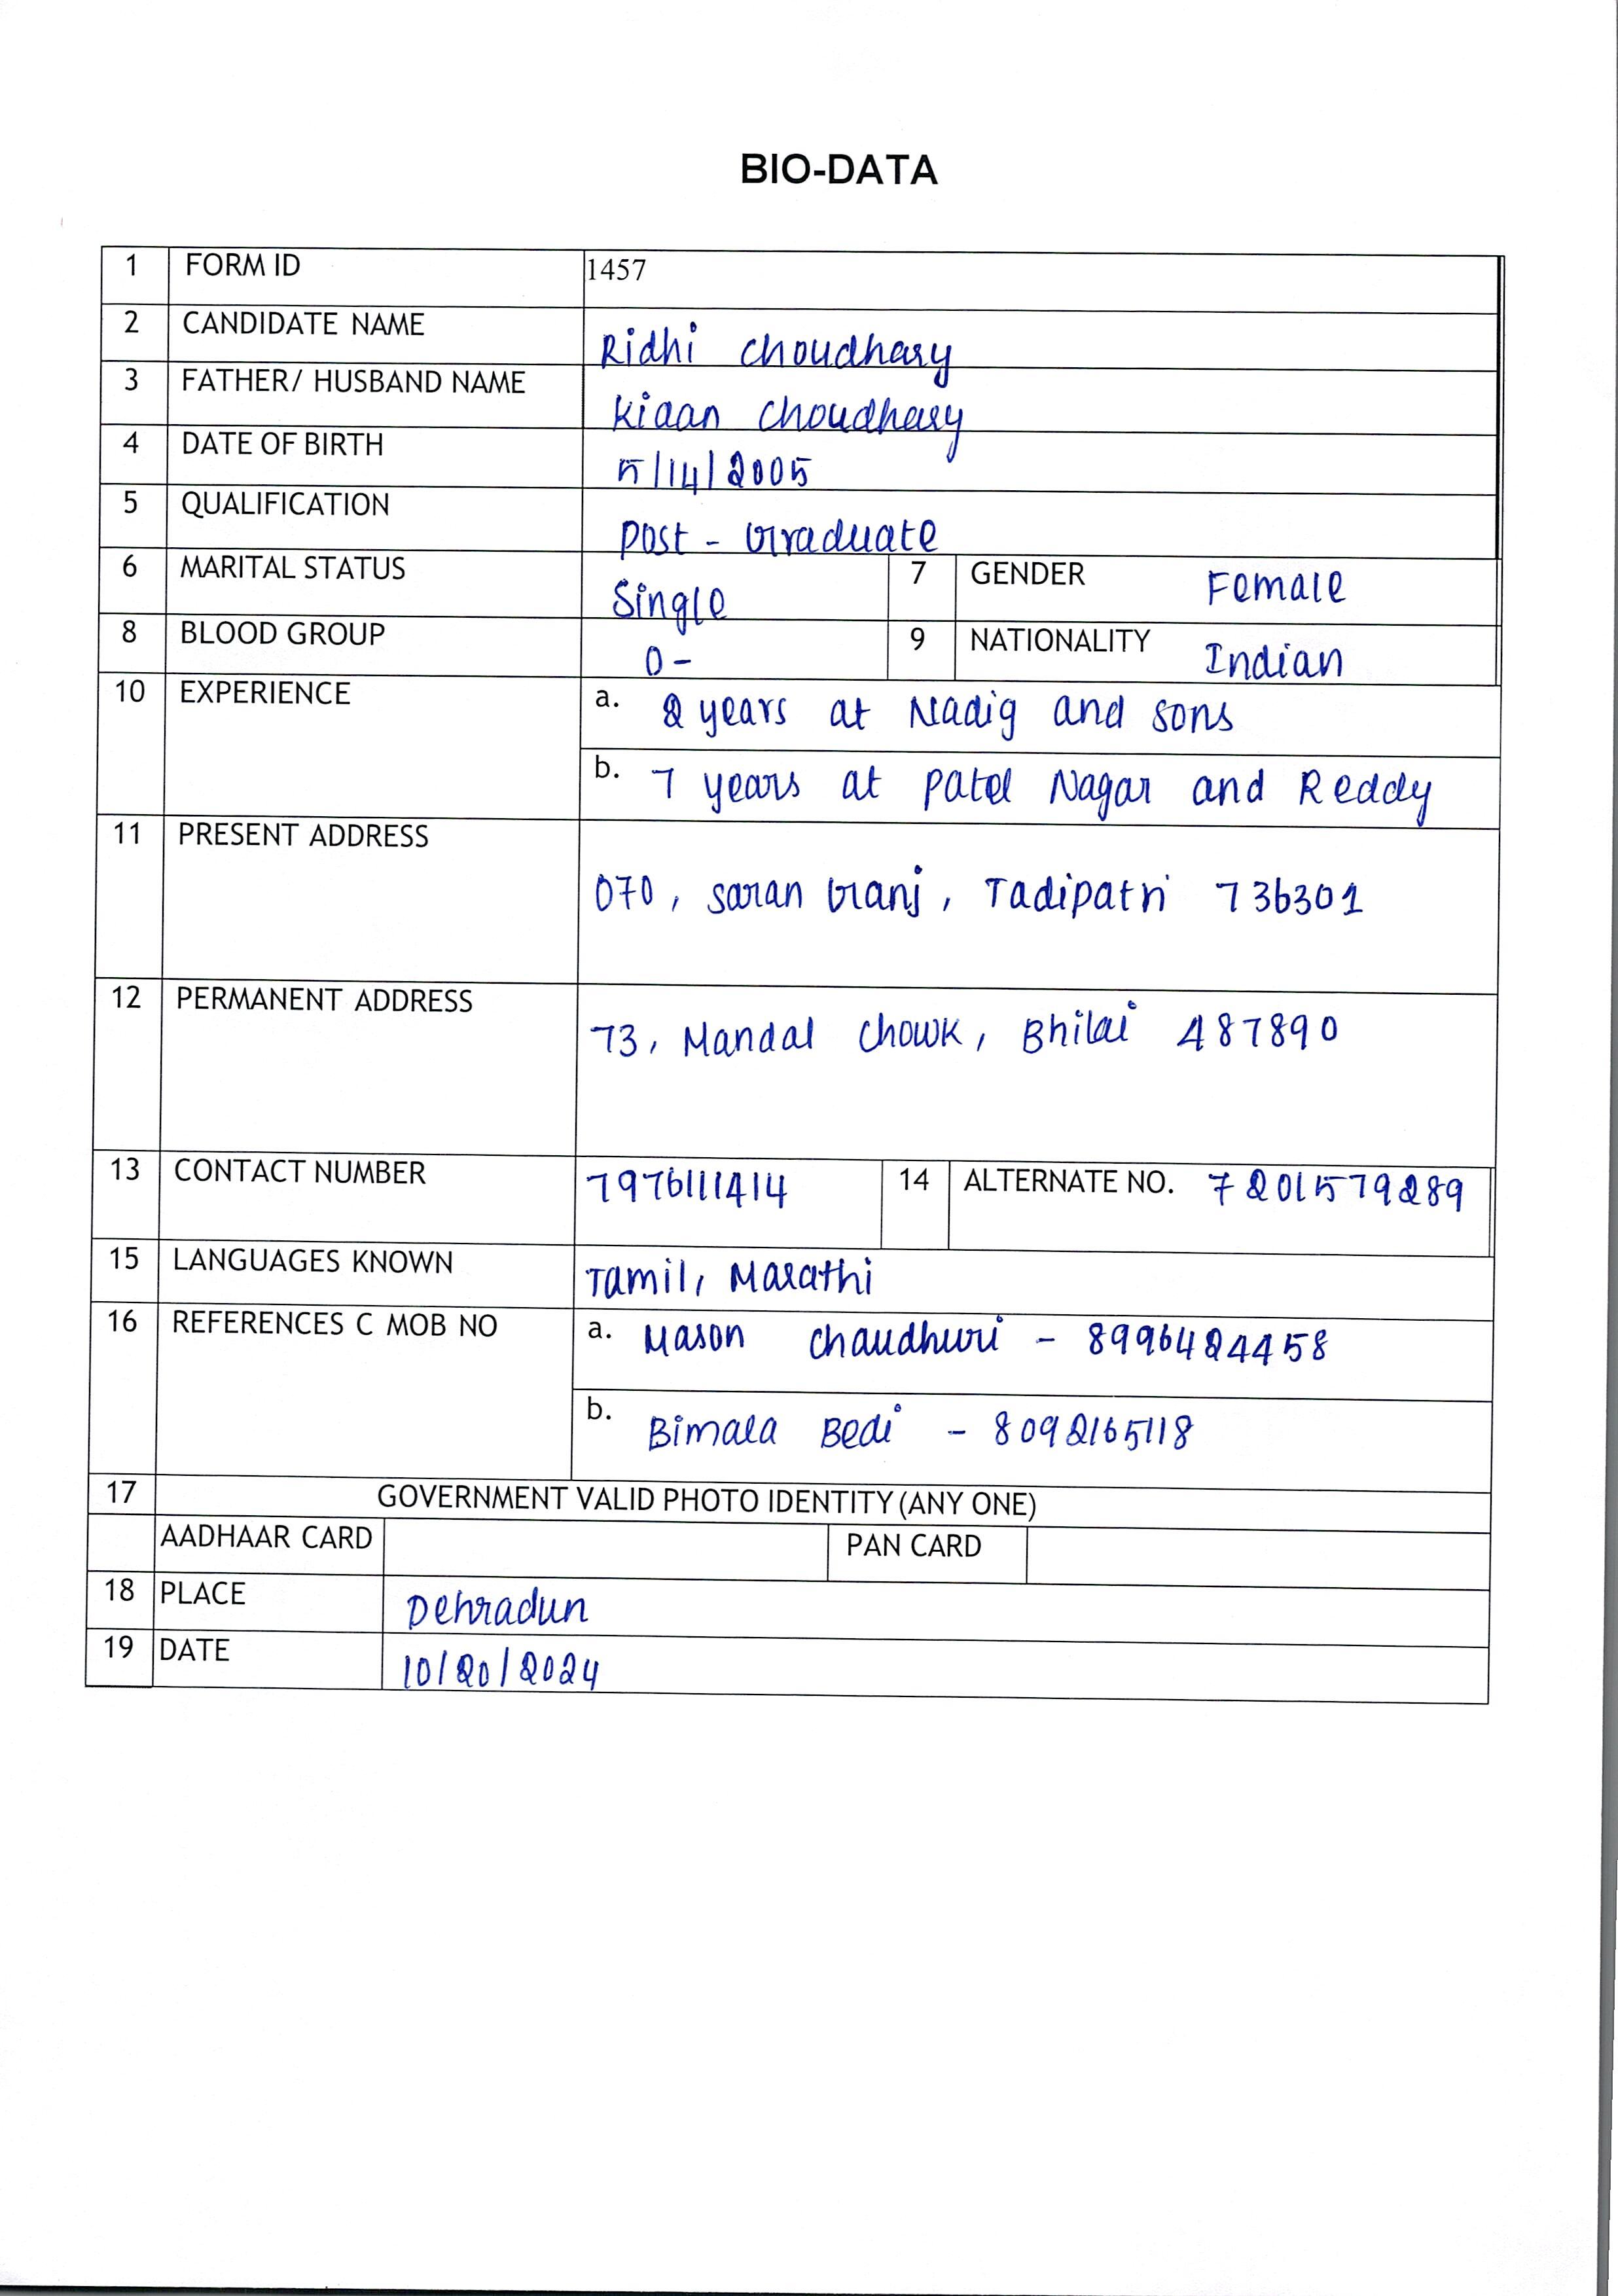 BIO-DATA
1 FORM ID 1457
2 CANDIDATE NAME Ridhi Choudhary
3 FATHER/ HUSBAND NAME Kiaan Choudhary
4 DATE OF BIRTH 5/14/2005
5 QUALIFICATION Post - Graduate
6 MARITAL STATUS Single 7 GENDER Female
8 BLOOD GROUP O- 9 NATIONALITY Indian
10 EXPERIENCE a. 2 years at Nadig and sons
b. 7 years at Patel Nagar and Reddy
11 PRESENT ADDRESS
070, Saran Ganj, Tadipatri 736301
12 PERMANENT ADDRESS
73, Mandal Chowk, Bhilai 487890
13 CONTACT NUMBER 7976111414 14 ALTERNATE NO. 7201579289
15 LANGUAGES KNOWN Tamil, Marathi
16 REFERENCES C MOB NO a. Mason Chaudhuri - 8996424458
b. Bimala Bedi - 8092165118
17 GOVERNMENT VALID PHOTO IDENTITY (ANY ONE)
AADHAAR CARD PAN CARD
18 PLACE Dehradun
19 DATE 10/20/2024